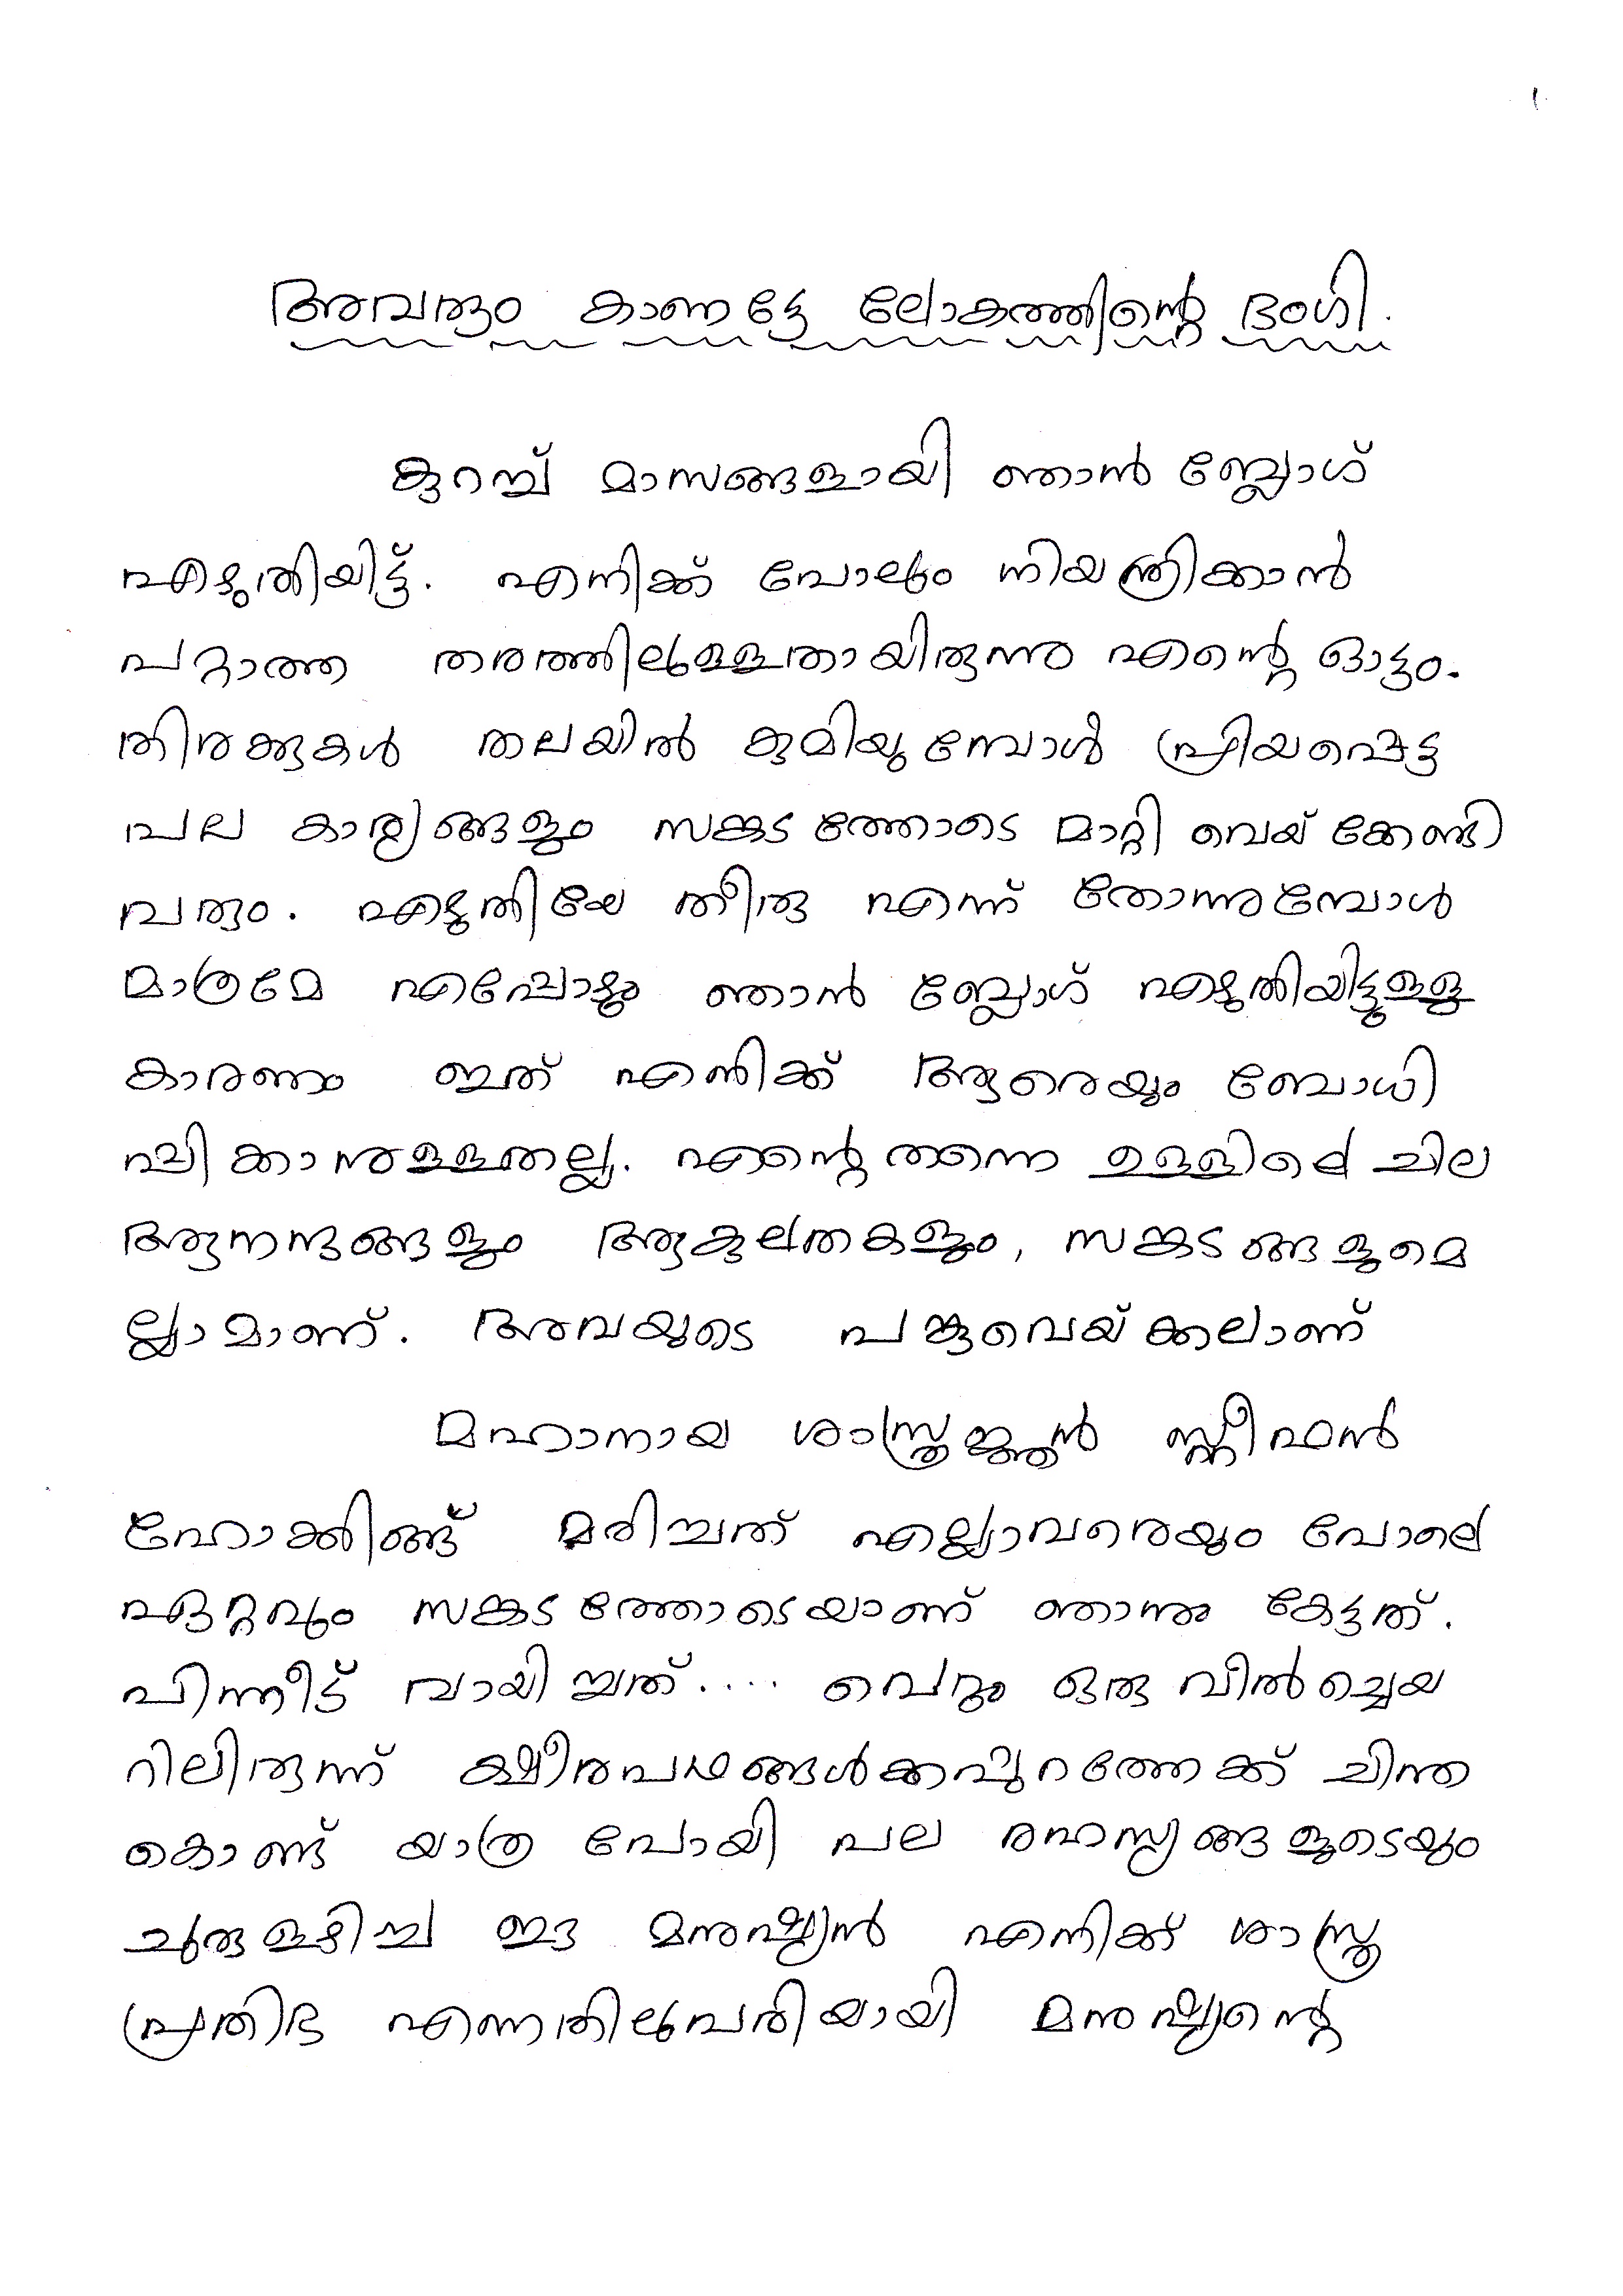 1
അവരും കാണട്ടേ ലോകത്തിന്റെ ഭംഗി.
കുറച്ച് മാസങ്ങളായി ഞാൻ ബ്ലോഗ്
എഴുതിയിട്ട്. എനിക്ക് പോലും നിയന്ത്രിക്കാൻ
പറ്റാത്ത തരത്തിലുള്ളതായിരുന്നു എന്റെ ഓട്ടം.
തിരക്കുകൾ തലയിൽ കുമിയുമ്പോൾ പ്രിയപ്പെട്ട
പല കാര്യങ്ങളും സങ്കടത്തോടെ മാറ്റി വെയ്ക്കേണ്ടി
വരും. എഴുതിയേ തീരു എന്ന് തോന്നുമ്പോൾ
മാത്രമേ എപ്പോഴും ഞാൻ ബ്ലോഗ് എഴുതിയിട്ടുള്ളു
കാരണം ഇത് എനിക്ക് ആരെയും ബോധി
പ്പിക്കാനുള്ളതല്ല. എന്റെ തന്നെ ഉള്ളിലെ ചില
ആനന്ദങ്ങളും ആകുലതകളും, സങ്കടങ്ങളുമെ
ല്ലാമാണ്. അവയുടെ പങ്കുവെയ്ക്കലാണ്
മഹാനായ ശാസ്ത്രജ്ഞൻ സ്റ്റീഫൻ
ഹോക്കിങ്ങ് മരിച്ചത് എല്ലാവരെയും പോലെ
ഏറ്റവും സങ്കടത്തോടെയാണ് ഞാനും കേട്ടത്.
പിന്നീട് വായിച്ചത്.... വെറും ഒരു വീൽച്ചെയ
റിലിരുന്ന് ക്ഷീരപഥങ്ങൾക്കപ്പുറത്തേക്ക് ചിന്ത
കൊണ്ട് യാത്ര പോയി പല രഹസ്യങ്ങളുടെയും
ചുരുളഴിച്ച ഈ മനുഷ്യൻ എനിക്ക് ശാസ്ത്ര
പ്രതിഭ എന്നതിലുപരിയായി മനുഷ്യന്റെ